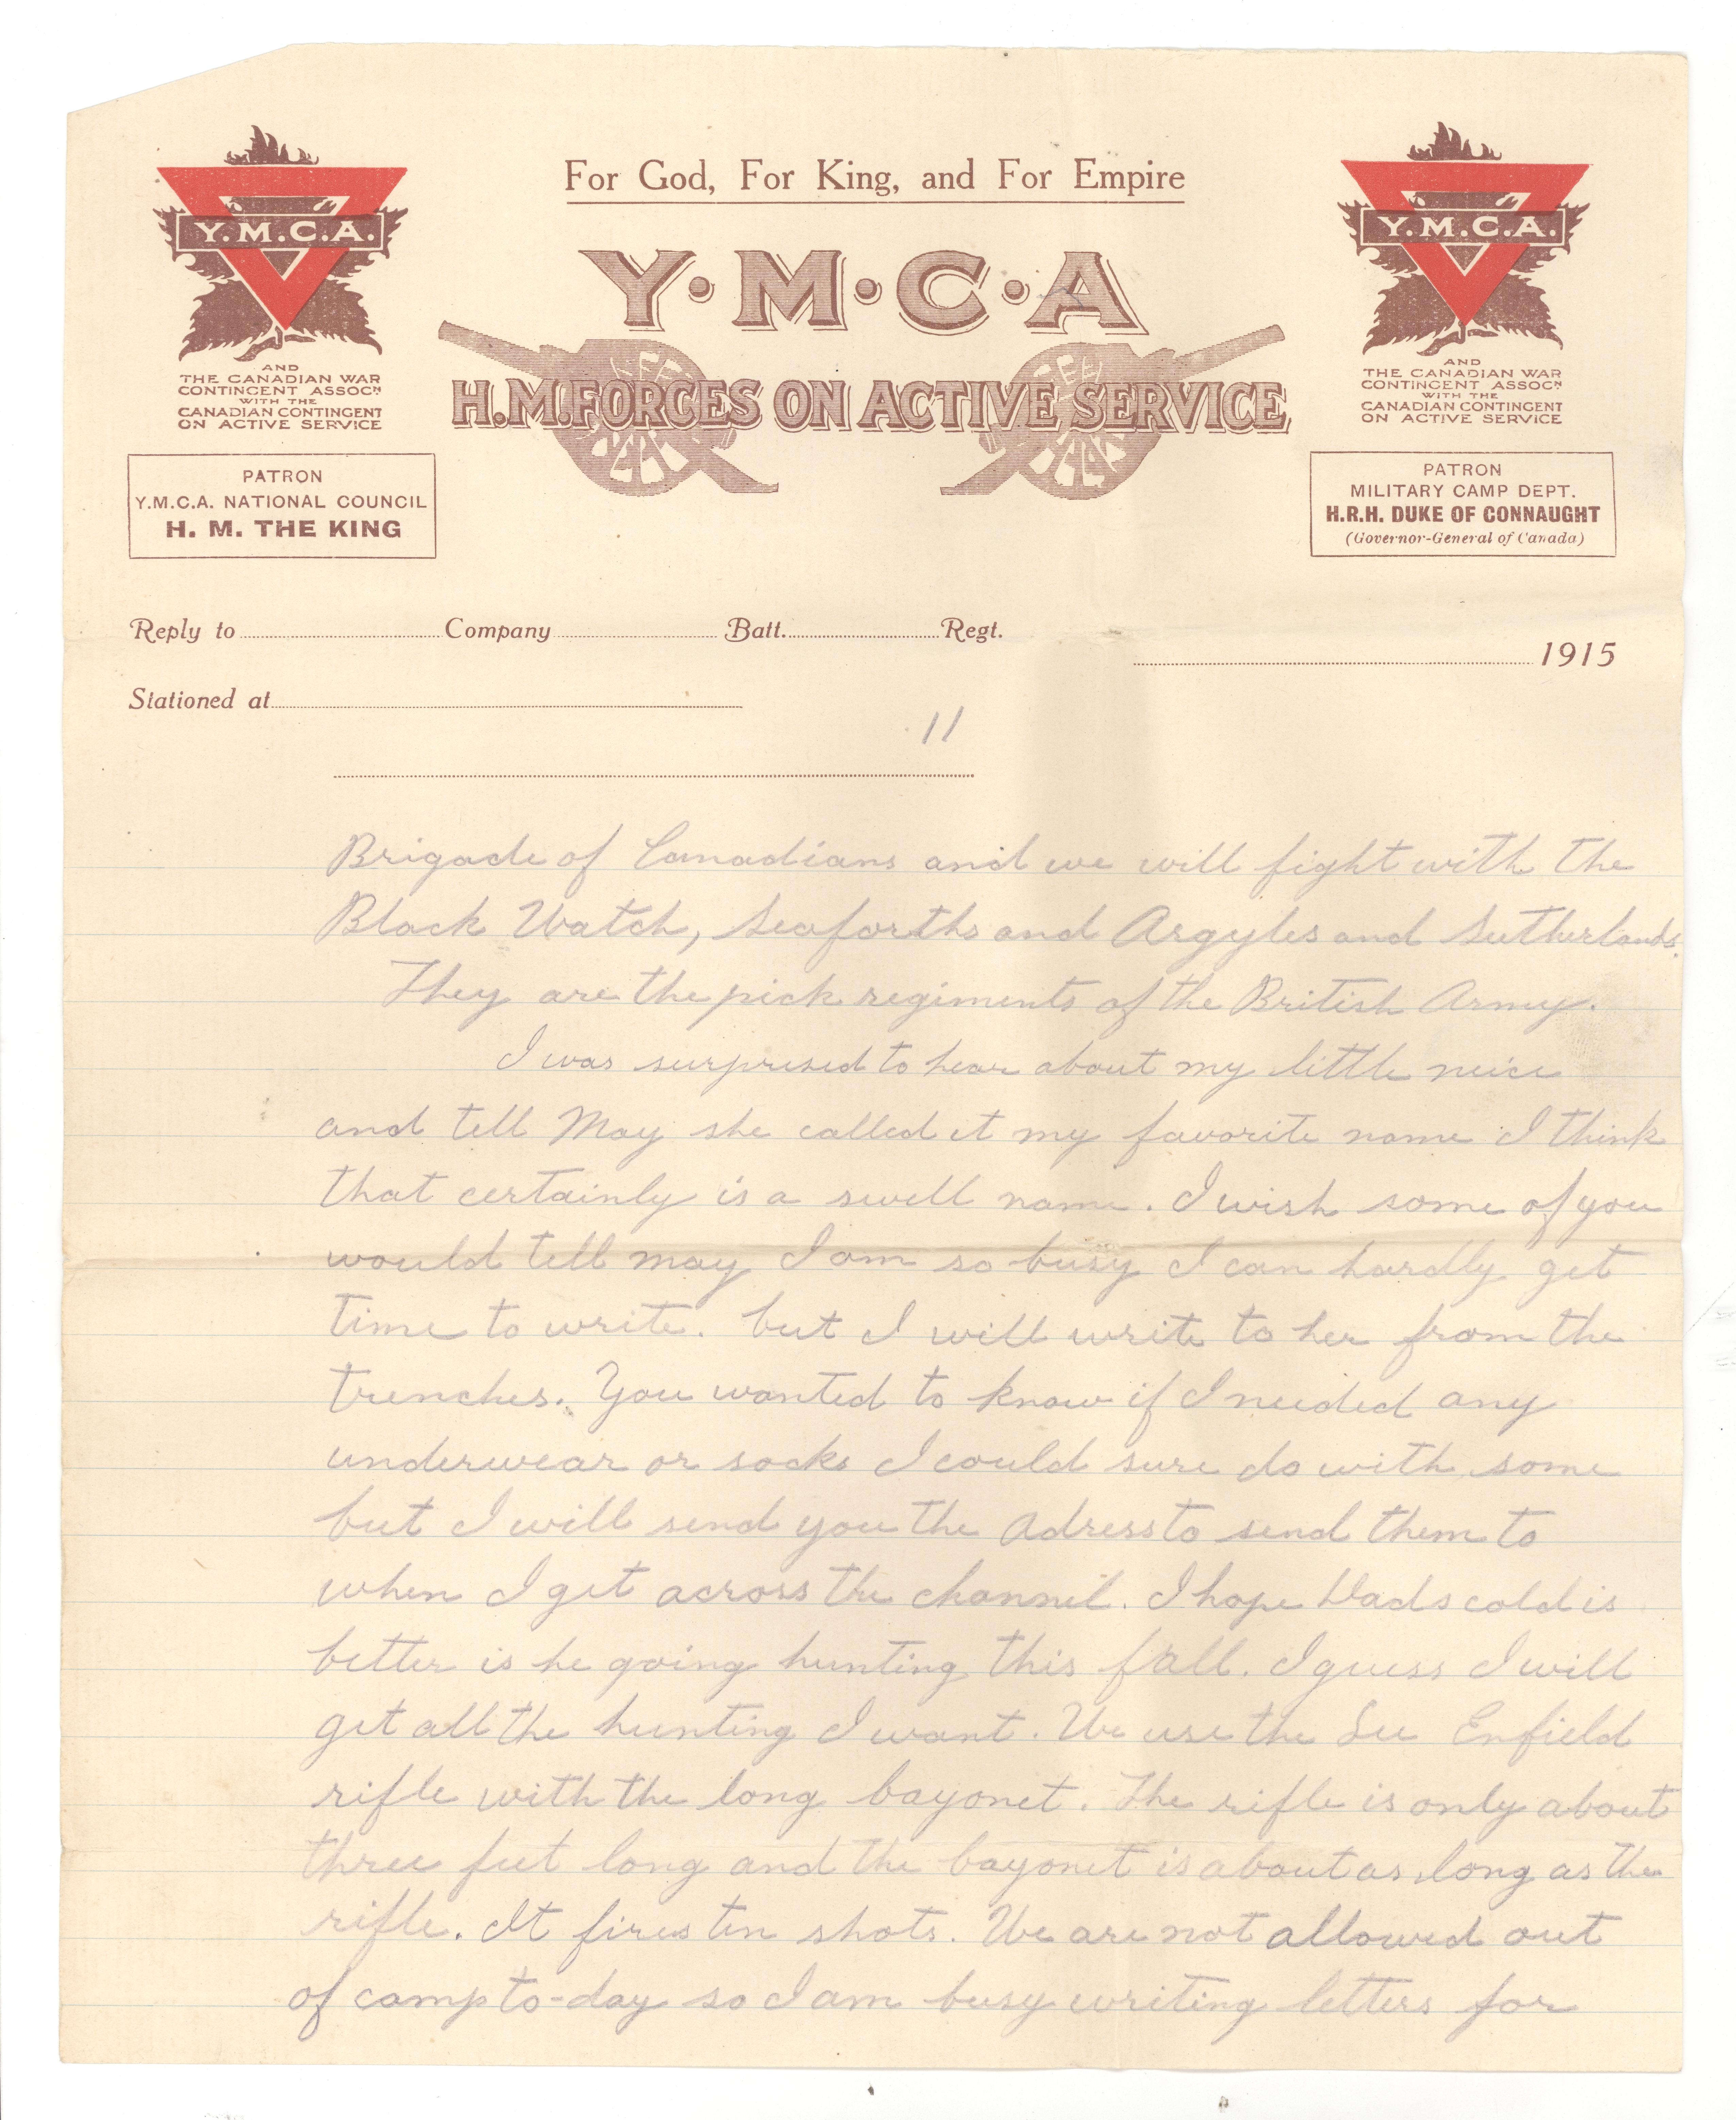 For God, For King, and For Empire
Y.M.C.A.
Y·M·C·A
Y.M.C.A.
H.M. FORCES ON ACTIVE SERVICE
AND
THE CANADIAN WAR
CONTINGENT ASSOCN
WITH THE
CANADIAN CONTINGENT
ON ACTIVE SERVICE
AND
THE CANADIAN WAR
CONTINGENT ASSOCN
WITH THE
CANADIAN CONTINGENT
ON ACTIVE SERVICE
PATRON
Y.M.C.A. NATIONAL COUNCIL
H. M. THE KING
PATRON
MILITARY CAMP DEPT.
H.R.H. DUKE OF CONNAUGHT
(Governor-General of Canada)
Reply to Company Batt. Regt.
1915
Stationed at
11
Brigade of Canadians and we will fight with the
Black Watch, Seaforths and Argyles and Sutherlands.
They are the pick regiments of the British Army.
I was surprised to hear about my little neice
and tell May she called it my favorite name I think
that certainly is a swell name. I wish some of you
would tell may I am so busy I can hardly get
time to write. but I will write to her from the
trenches. You wanted to know if I needed any
underwear or socks I could sure do with some
but I will send you the adress to send them to
when I get across the channel. I hope Dads cold is
better is he going hunting this fall. I guess I will
get all the hunting I want. We use the Lee Enfield
rifle with the long bayonet. The rifle is only about
three feet long and the bayonet is about as long as the
rifle. It fires ten shots. We are not allowed out
of camp to-day so I am busy writing letters for